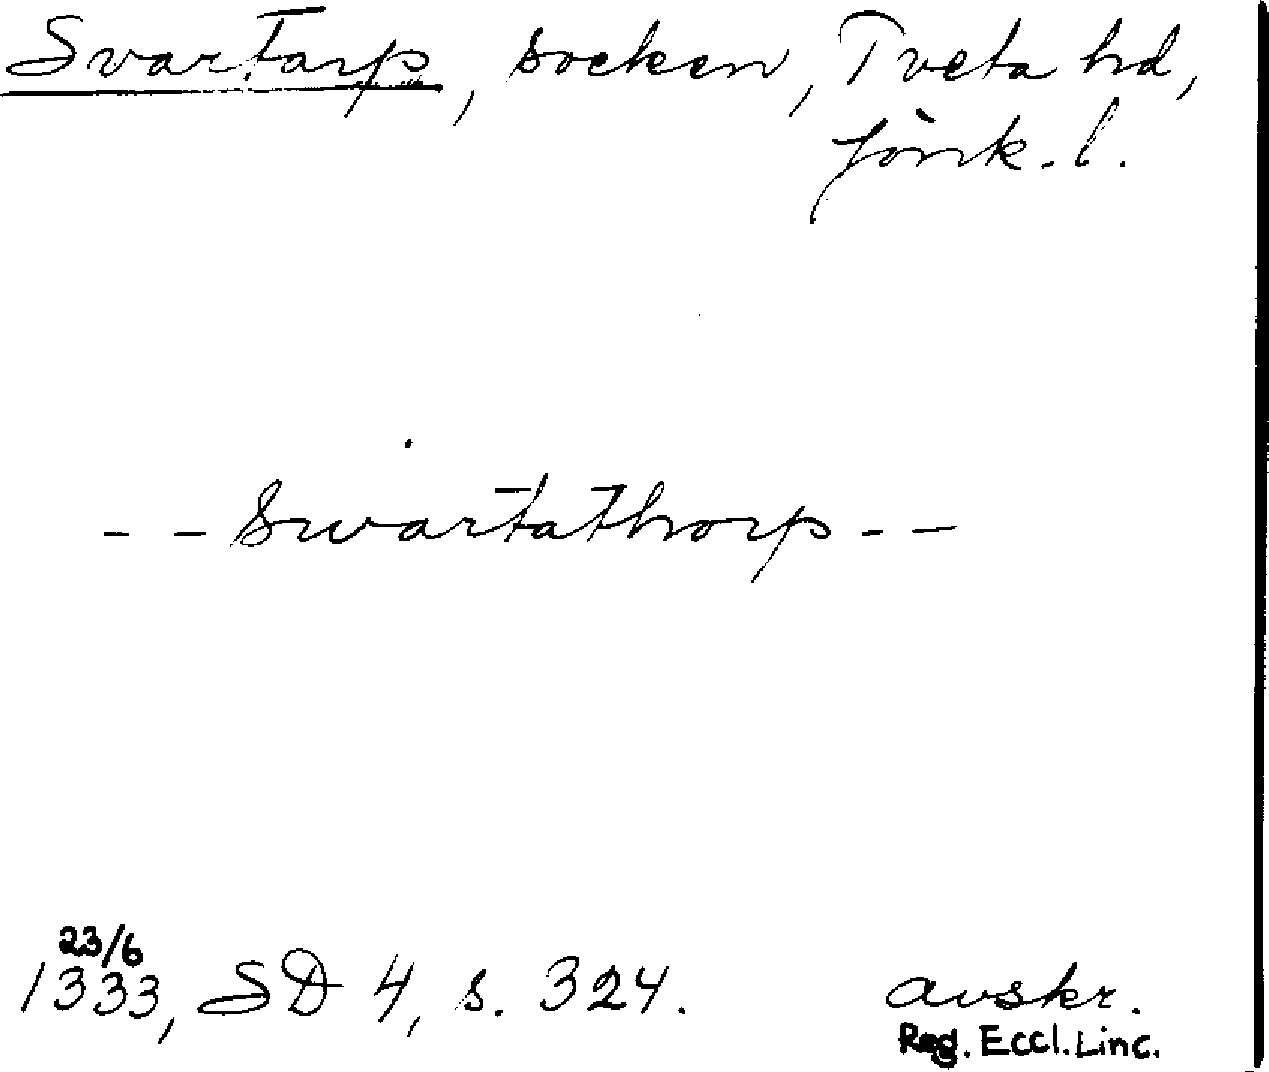 Svartarp, socken, Tveta hd,
Jönk. l.
- - Swartathorp - -
23/6
1333, SD 4, s. 324.
avskr.
Reg. Eccl. Linc.